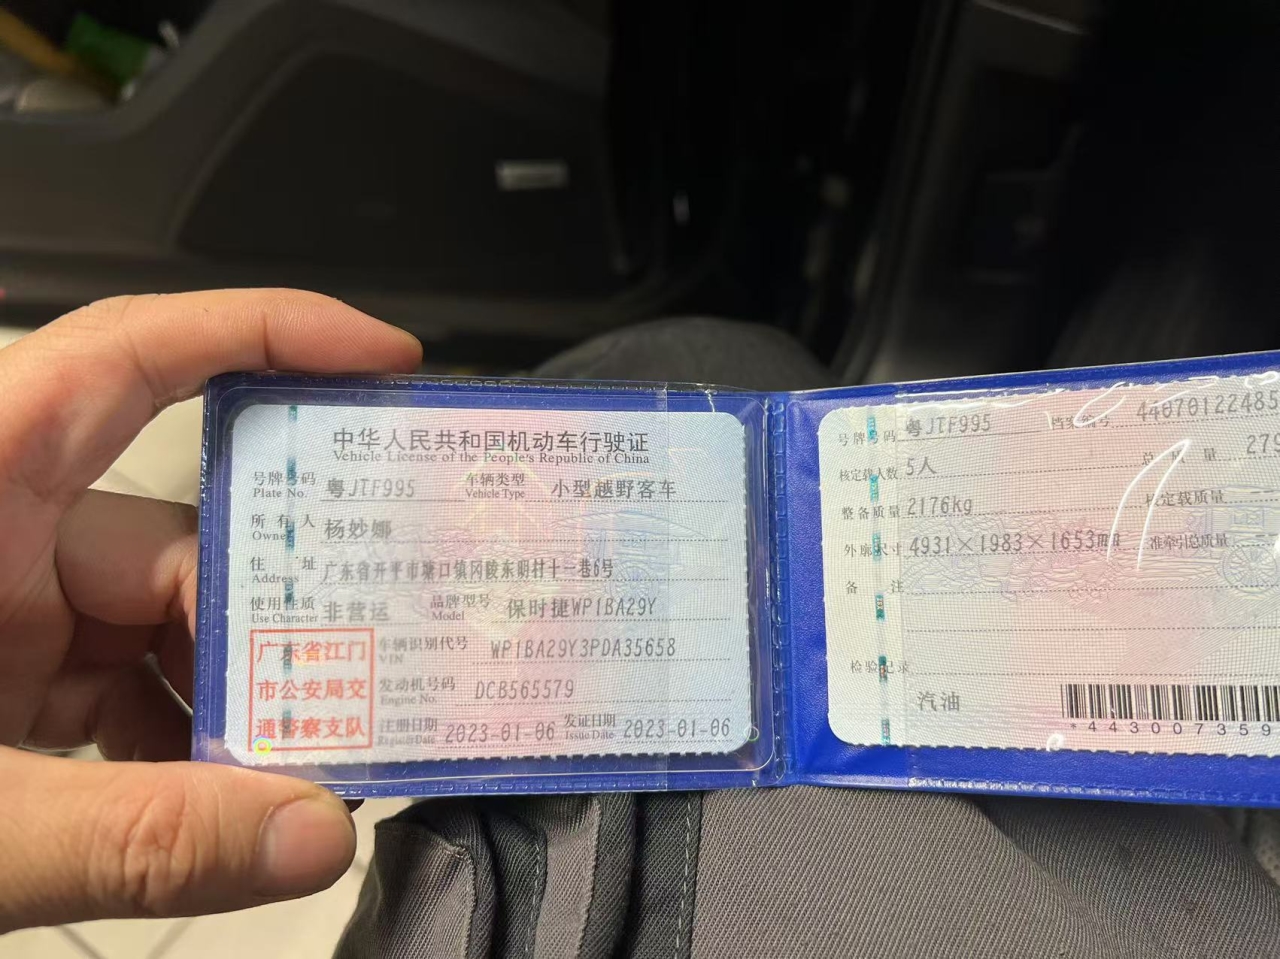 中华人民共和国机动车行驶证
Vehicle License of the People's Republic of China
号牌号码 粤JTF995 车辆类型 小型越野客车
Plate No. Vehicle Type
所有人 杨妙娜
Owner
住址 广东省开平市塘口镇冈陵东明村十一巷6号
Address
使用性质 非营运 品牌型号 保时捷WP1BA29Y
Use Character Model
广东省江门
市公安局交
通警察支队
车辆识别代号 WP1BA29Y3PDA35658
VIN
发动机号码 DCB565579
Engine No.
注册日期 2023-01-06 发证日期 2023-01-06
Register Date Issue Date
号牌号码 粤JTF995 档案编号 44070122485
核定载人数 5人 总质量 279
整备质量 2176kg 核定载质量 --
外廓尺寸 4931×1983×1653mm 准牵引总质量 --
备注
检验记录
汽油
*443007359